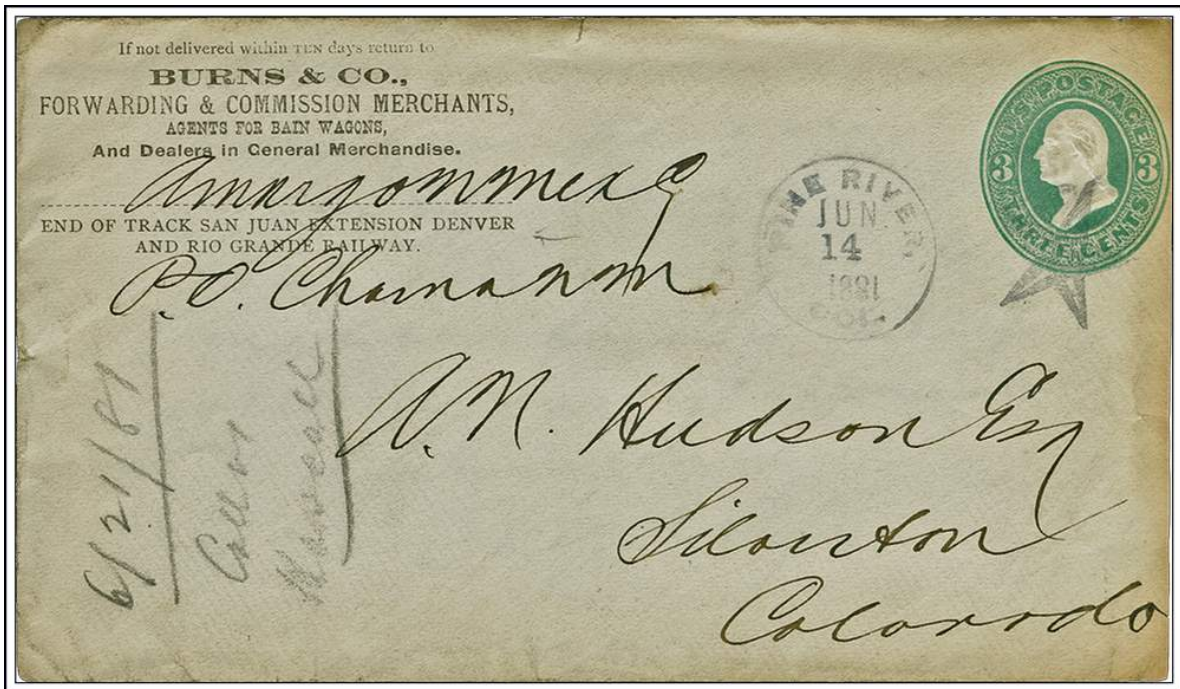 If not delivered within TEN days return to
BURNS & CO.,
FORWARDING & COMMISSION MERCHANTS,
AGENTS FOR BAIN WAGONS,
And Dealers in General Merchandise.
END OF TRACK SAN JUAN EXTENSION DENVER
AND RIO GRANDE RAILWAY.
P.O. Chama
PINE RIVER
JUN
14
1881
COL.
U.S. POSTAGE
3 3
THREE CENTS
A. N. Hudson Esq
Silverton
Colorado
6/21/81
Call on